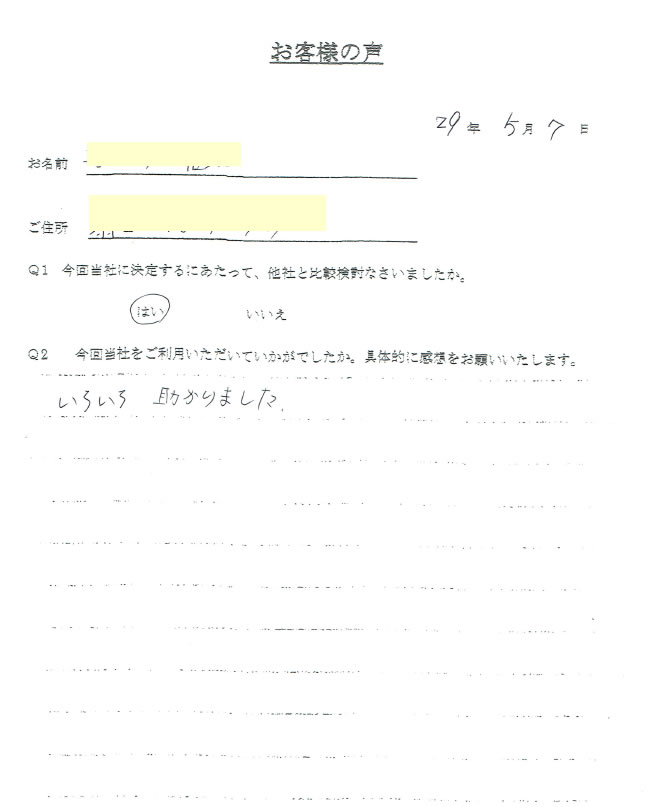 お客様の声
29年 5月 7日
お名前
ご住所
Q1 今回当社に決定するにあたって、他社と比較検討なさいましたか。
はい いいえ
Q2 今回当社をご利用いただいていかがでしたか。具体的に感想をお願いいたします。
いろいろ 助かりました.